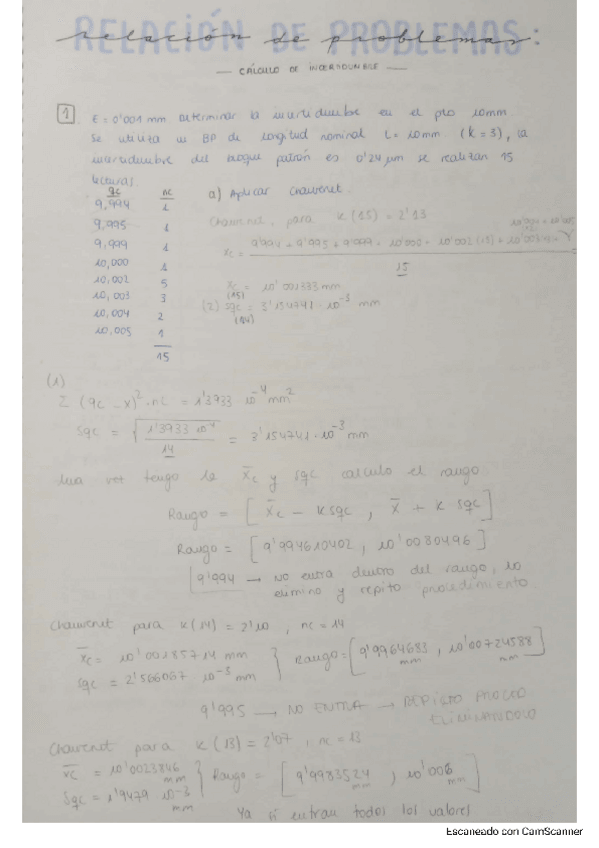 RELACIÓN DE PROBLEMAS
relación de problemas:
— CÁLCULO DE INCERTIDUMBRE —
1 E = 0'001 mm determinar la incertidumbre en el pto 10mm
Se utiliza un BP de longitud nominal L = 10mm (k=3), la
incertidumbre del bloque patrón es 0'24 μm se realizan 15
lecturas.
qc nc
9,994 1
9,995 1
9,999 1
10,000 1
10,002 5
10,003 3
10,004 2
10,005 1
15
a) Aplicar Chauvenet.
Chauvenet, para k(15) = 2'13
x̄c = 9'994 + 9'995 + 9'999 + 10'000 + 10'002 (5) +
15
x̄c = 10'001333 mm
(15)
(2) sqc = 3'154741·10⁻³ mm
(14)
(1)
Σ (qc - x)²·nc = 1'3933 10⁻⁴ mm²
Sqc = √ 1'3933 10⁻⁴ / 14 = 3'154741·10⁻³ mm
Una vez tengo la x̄c y sqc calculo el rango
Rango = [ x̄c − k sqc , x̄ + k sqc ]
Rango = [ 9'994610402, 10'0080496 ]
9'994 → NO entra dentro del rango, lo
elimino y repito procedimiento
Chauvenet para k(14) = 2'10 , nc = 14
x̄c = 10'00185714 mm
sqc = 2'566067 10⁻³ mm
Rango = [ 9'9964683 mm , 10'00724588 mm ]
9'995 → NO ENTRA → REPITO PROCED
ELIMINANDOLO
Chauvenet para k(13) = 2'07 , nc = 13
x̄c = 10'0023846 mm
Sqc = 1'9479 10⁻³ mm
Rango = [ 9'9983524 mm , 10'006 mm ]
Ya sí entran todos los valores
Escaneado con CamScanner